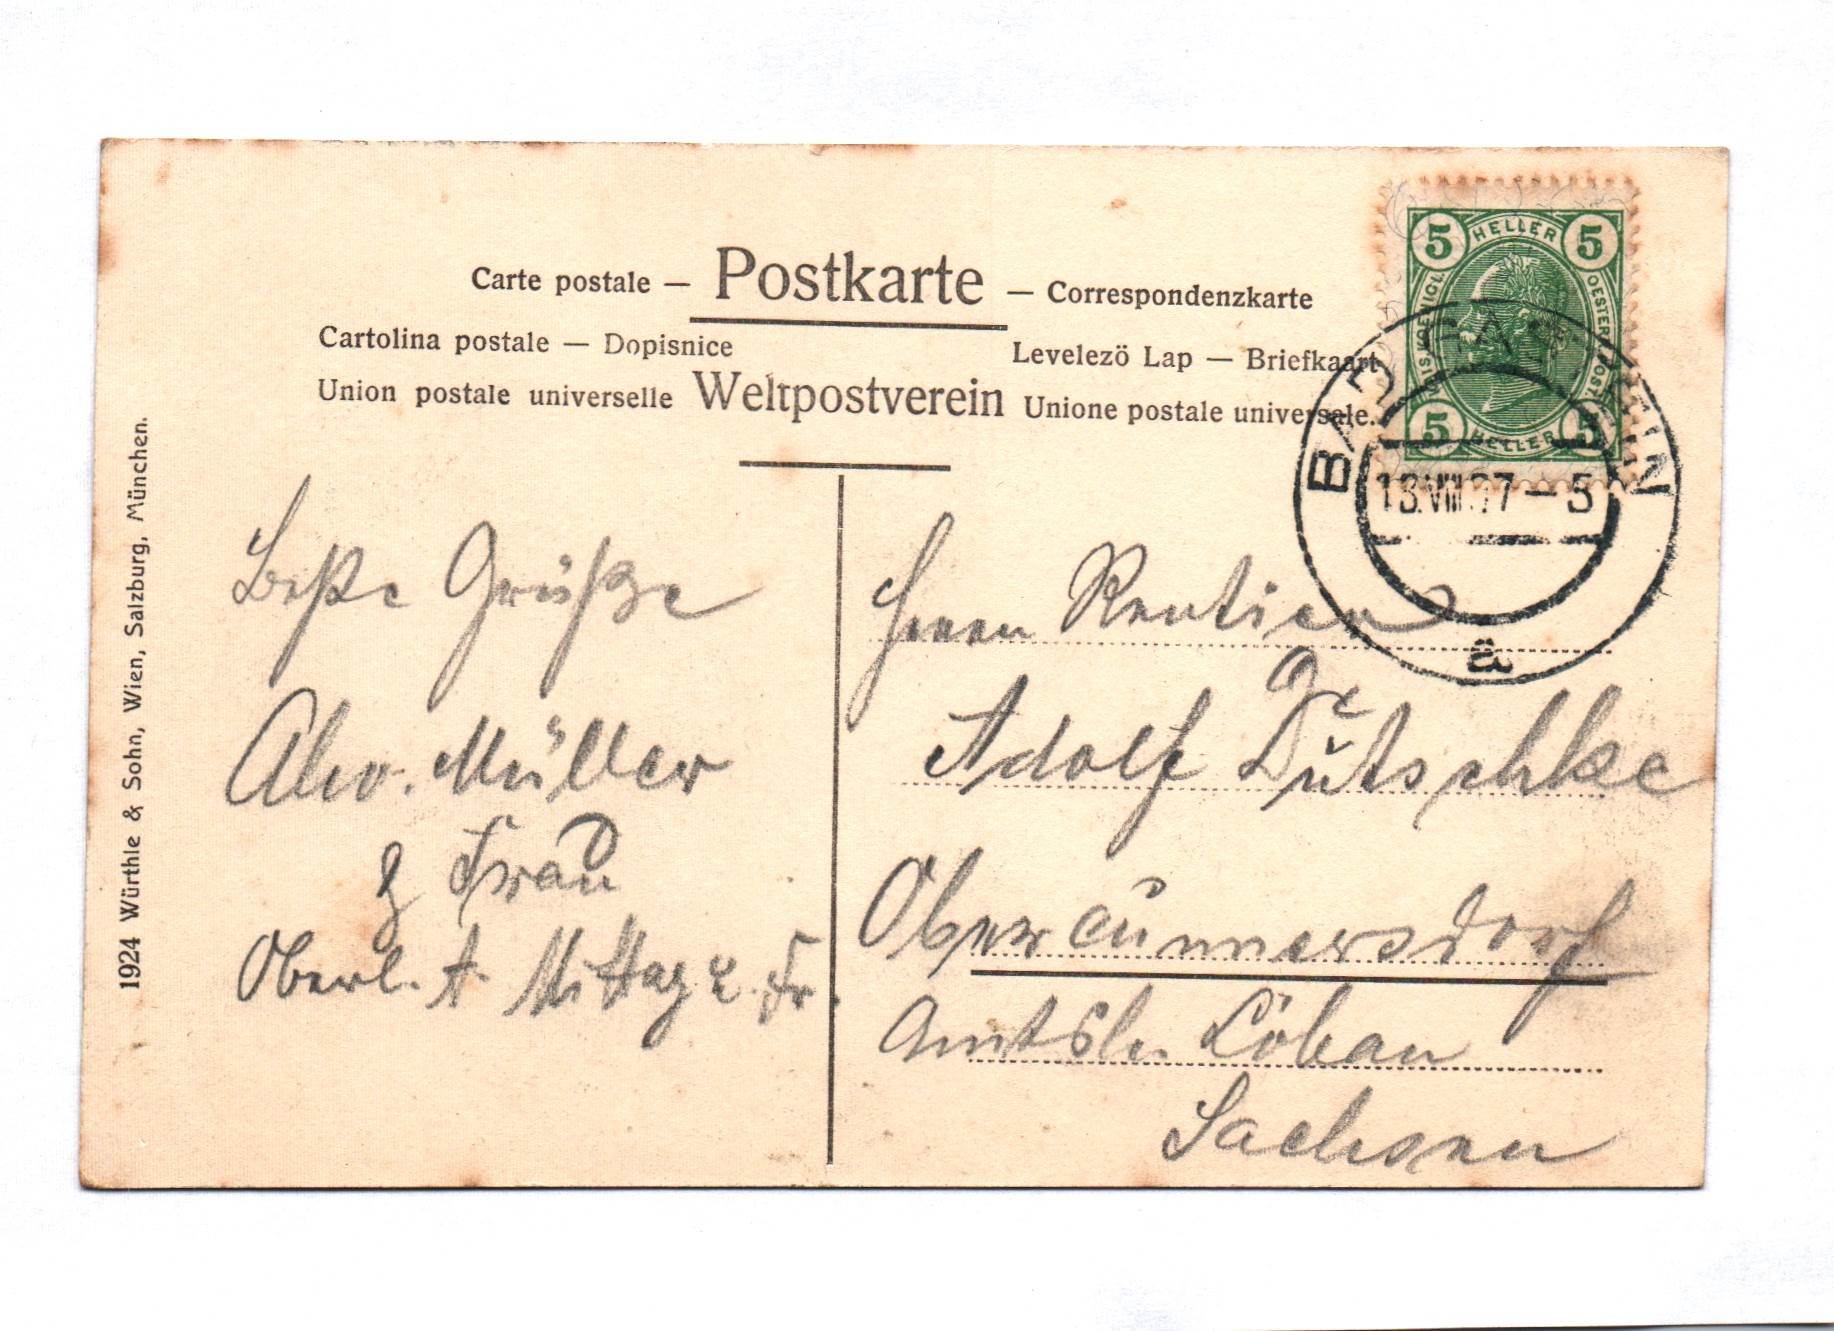 Carte postale — Postkarte — Correspondenzkarte
Cartolina postale — Dopisnice Levelezö Lap — Briefkaart
Union postale universelle Weltpostverein Unione postale universale.
5 HELLER 5
KAIS. KOENIGL. OESTERR. POST
5 HELLER 5
BAD GASTEIN
13.VIII.07—5
a
1924 Würthle & Sohn, Wien, Salzburg, München.
Beste Grüße
Alw. Müller
& Frau
Oberl. A. Mittag u. Fr.
Herrn Rentier
Adolf Dutschke
Obercunnersdorf
Amtsh. Löbau
Sachsen